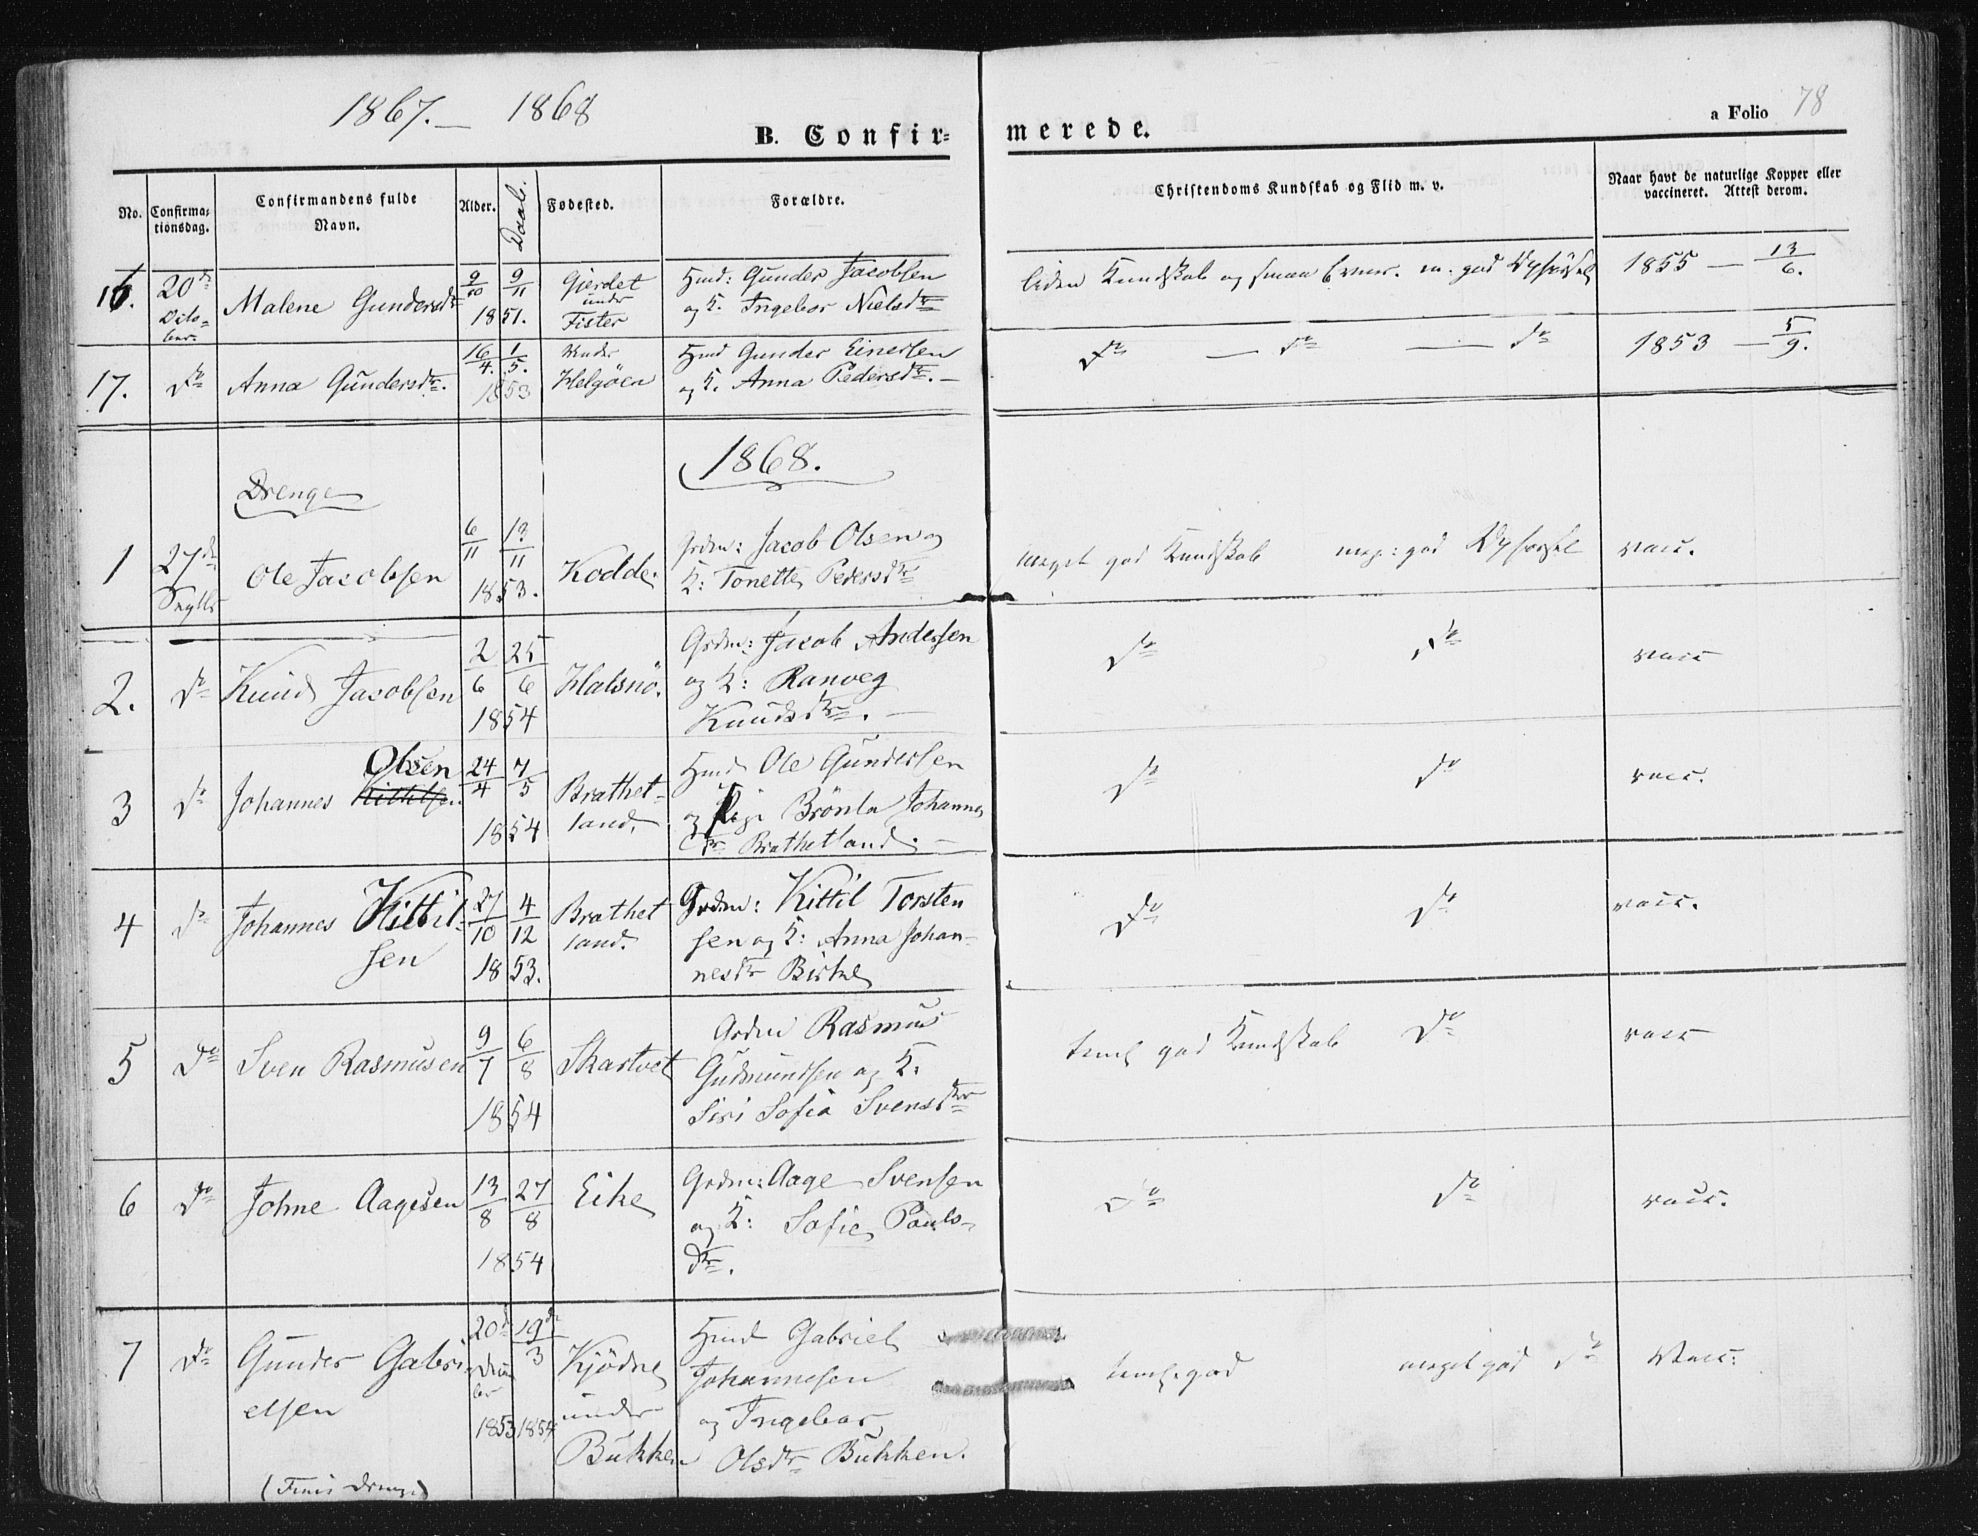 1867. — 1868
B. Confir-
merede.
a Folio 78
No.
Confirma-
tionsdag.
Confirmandens fulde
Navn.
Alder.
Daab.
Fødested.
Forældre.
Christendoms Kundskab og Flid m. v.
Naar havt de naturlige Kopper eller
vaccineret. Attest derom.
16. 20de Octo-
ber
Malene Gundersdtr
9/10 9/11
1851.
Gjerdet
under
Fister
Hmd: Gunder Jacobsen
og K. Ingebor Nielsdtr
liden Kundskab og m. god Opførsel
1855 — 13/6.
17. Do Anna Gundersdtr.
16/4. 1/5.
1853
under
Helgøen
Hmd Gunder Einersen
og K. Anna Pedersdtr. —
Do — Do — Do
1853 — 5/9.
1868.
Drenge
1 27de
Ole Jacobsen
6/11 13/11
1853.
Kodde.
Grdm: Jacob Olsen og
K: Tonette Pedersdtr
meget god Kundskab meg: god Opførsel
vacc.
2. Do Knud Jacobsen
2/6 25/6
1854
Halsnø.
Grdm: Jacob Andersen
og K: Ranveg
Knudsdtr. —
Do Do
vacc
3 Do Johannes Kittilsen Olsen
24/4 7/5
1854
Brathet-
land.
Hmd Ole Gundersen
og Pige Brønla Johannes
dtr Brathetland. —
Do Do
vacc.
4 Do Johannes Kittil-
sen
27/10 4/12
1853.
Brathet
land.
Grdm: Kittil Torsten
sen og K: Anna Johan-
nesdtr Birke
Do Do
vacc.
5 Do Sven Rasmusen
9/7 6/8
1854
Skartvet
Grdm Rasmus
Gudmundsen og K:
Siri Sofia Svensdtr
teml god Kundskab Do
vacc
6 Do Johne Aagesen
13/8 27/8
1854
Eike
Grdm: Aage Svensen
og K: Sofie Pauls-
dtr.
Do Do
vacc.
7 Do Gunder Gabri-
elsen
20de
19de/3
1853 1854
Kjødne
under
Bukken
Hmd Gabriel
Johannesen
og Ingebor
Olsdtr Bukken.
teml. god meget god Do
Vacc.
(Finis Drenge)